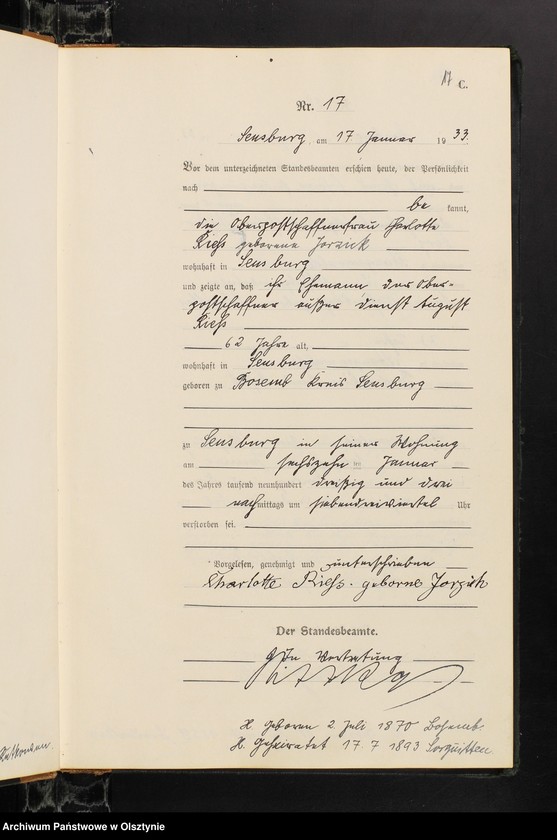 17 C.
Nr. 17
Sensburg am 17 Januar 1933.
Vor dem unterzeichneten Standesbeamten erschien heute, der Persönlichkeit
nach
be kannt,
die Oberpostschaffnerfrau Charlotte
Rieß geborene Jorzick
wohnhaft in Sensburg
und zeigte an, daß ihr Ehemann der Ober-
postschaffner außer Dienst August
Rieß
62 Jahre alt,
wohnhaft in Sensburg
geboren zu Bosemb Kreis Sensburg
zu Sensburg in seiner Wohnung
am sechszehn ten Januar
des Jahres tausend neunhundert dreißig und drei
nachmittags um siebendreiviertel Uhr
verstorben sei.
Vorgelesen, genehmigt und unterschrieben
Charlotte Rieß. geborne Jorzick
Der Standesbeamte.
In Vertretung
H. Geboren 2. Juli 1870 Bosemb.
H. Geheiratet 17 7 1893 Sorquitten
Archiwum Państwowe w Olsztynie